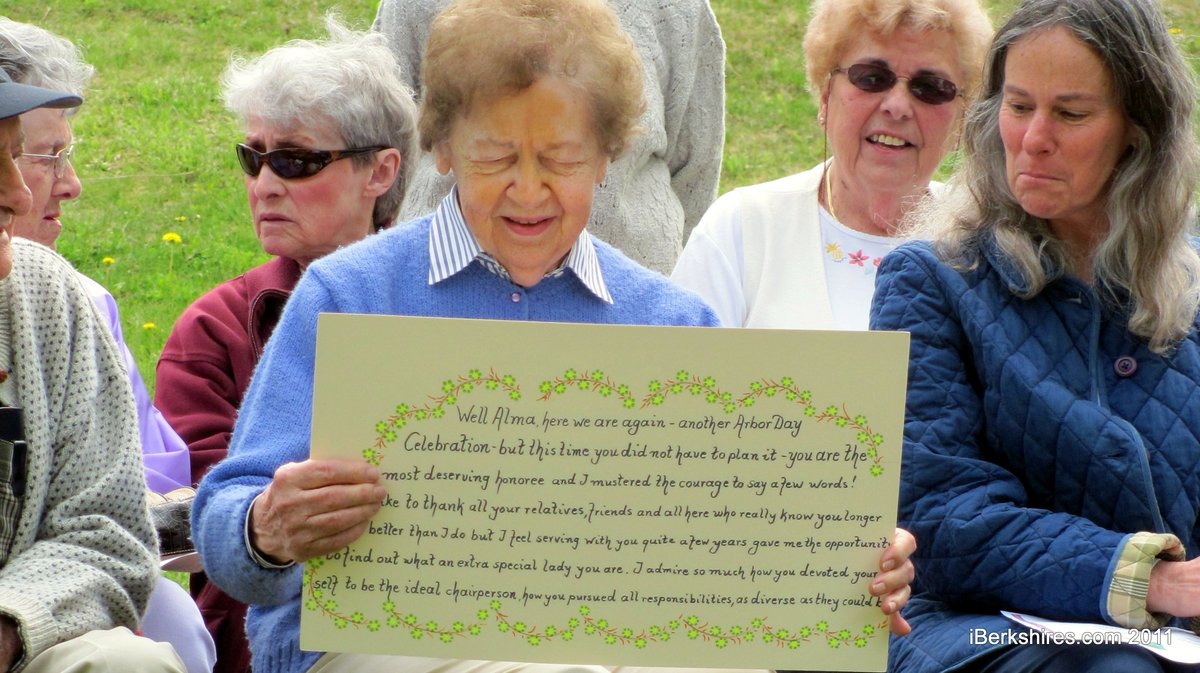 Well Alma, here we are again - another Arbor Day
Celebration - but this time you did not have to plan it - you are the
most deserving honoree and I mustered the courage to say a few words!
like to thank all your relatives, friends and all here who really know you longer
better than I do but I feel serving with you quite a few years gave me the opportunity
to find out what an extra special lady you are. I admire so much how you devoted your
self to be the ideal chairperson, how you pursued all responsibilities, as diverse as they could b
iBerkshires.com 2011